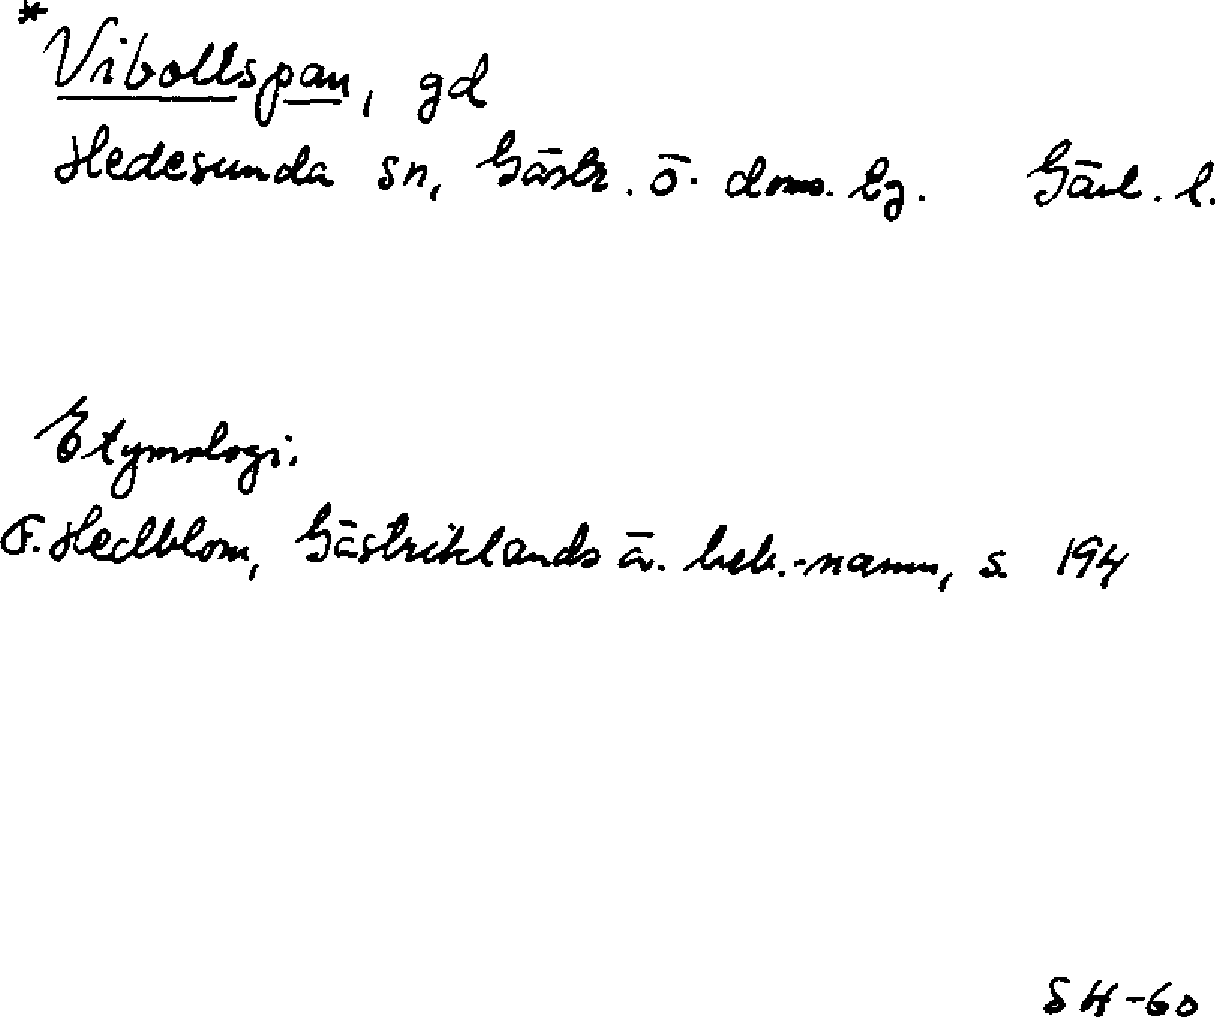 *Vibollspan, gd
Hedesunda sn, Gästr. ö. doms. lg. Gävl. l.
Etymologi.
F. Hedblom, Gästriklands ä. beb.-namn, s. 194
SH-60